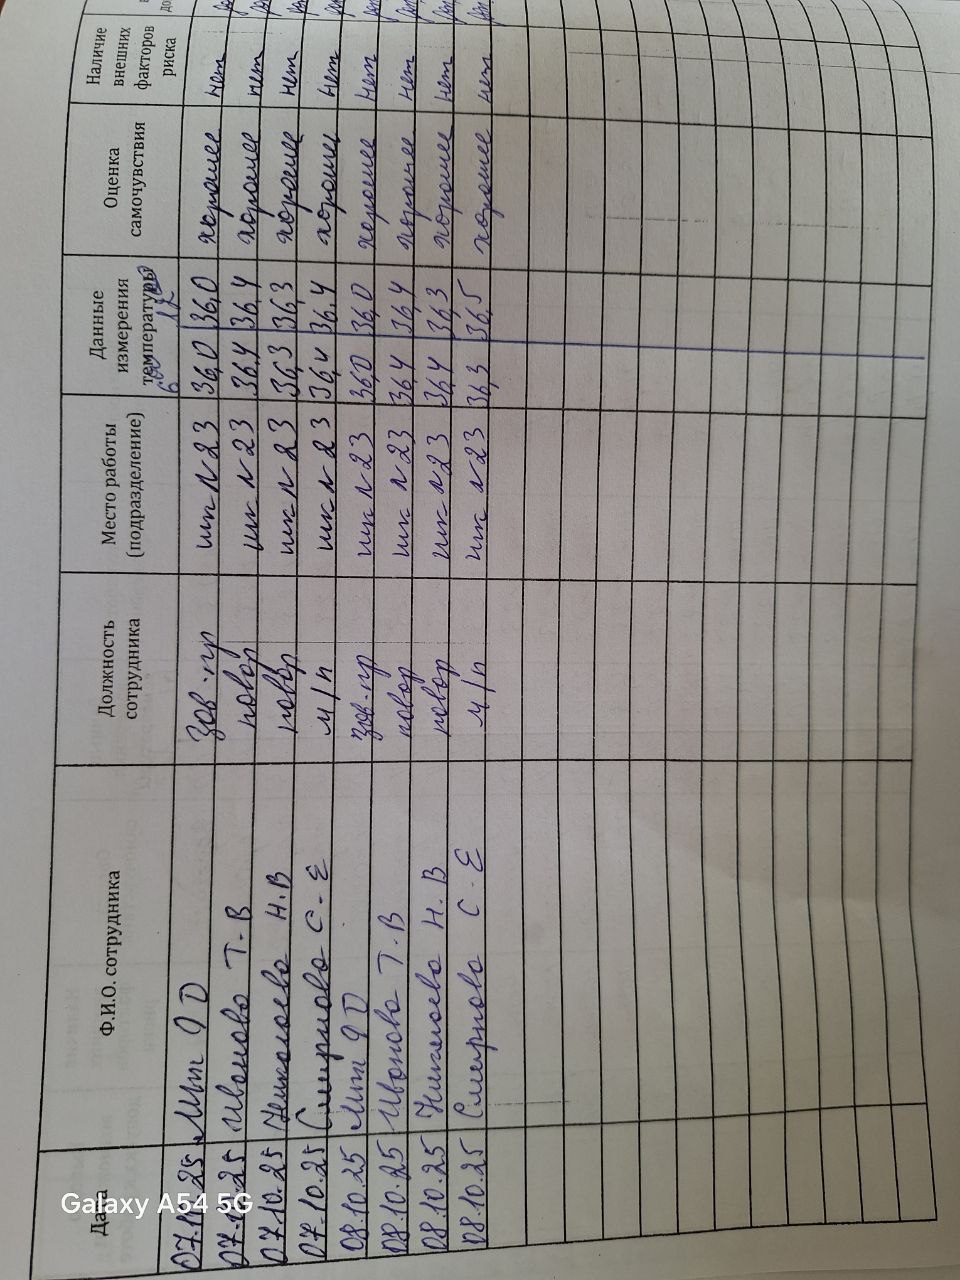 Дата Ф.И.О. сотрудника Должность сотрудника Место работы (подразделение) Данные измерения температуры Оценка самочувствия Наличие внешних факторов риска
07.10.25 Мит Я D Зав.пр шк N 23 36,0 36,0 хорошее нет
07.10.25 Иванова Т.В повар шк N 23 36,4 36,4 хорошее нет
07.10.25 Николаева Н.В повар шк N 23 36,3 36,3 хорошее нет
07.10.25 Смирнова С.Е м/п шк N 23 36,4 36,4 хорошее нет
08.10.25 Мит Я D зав.пр шк N 23 36,0 36,0 хорошее нет
08.10.25 Иванова Т.В повар шк N 23 36,4 36,4 хорошее нет
08.10.25 Николаева Н.В повар шк N 23 36,4 36,3 хорошее нет
08.10.25 Смирнова С.Е м/п шк N 23 36,3 36,5 хорошее нет
Galaxy A54 5G